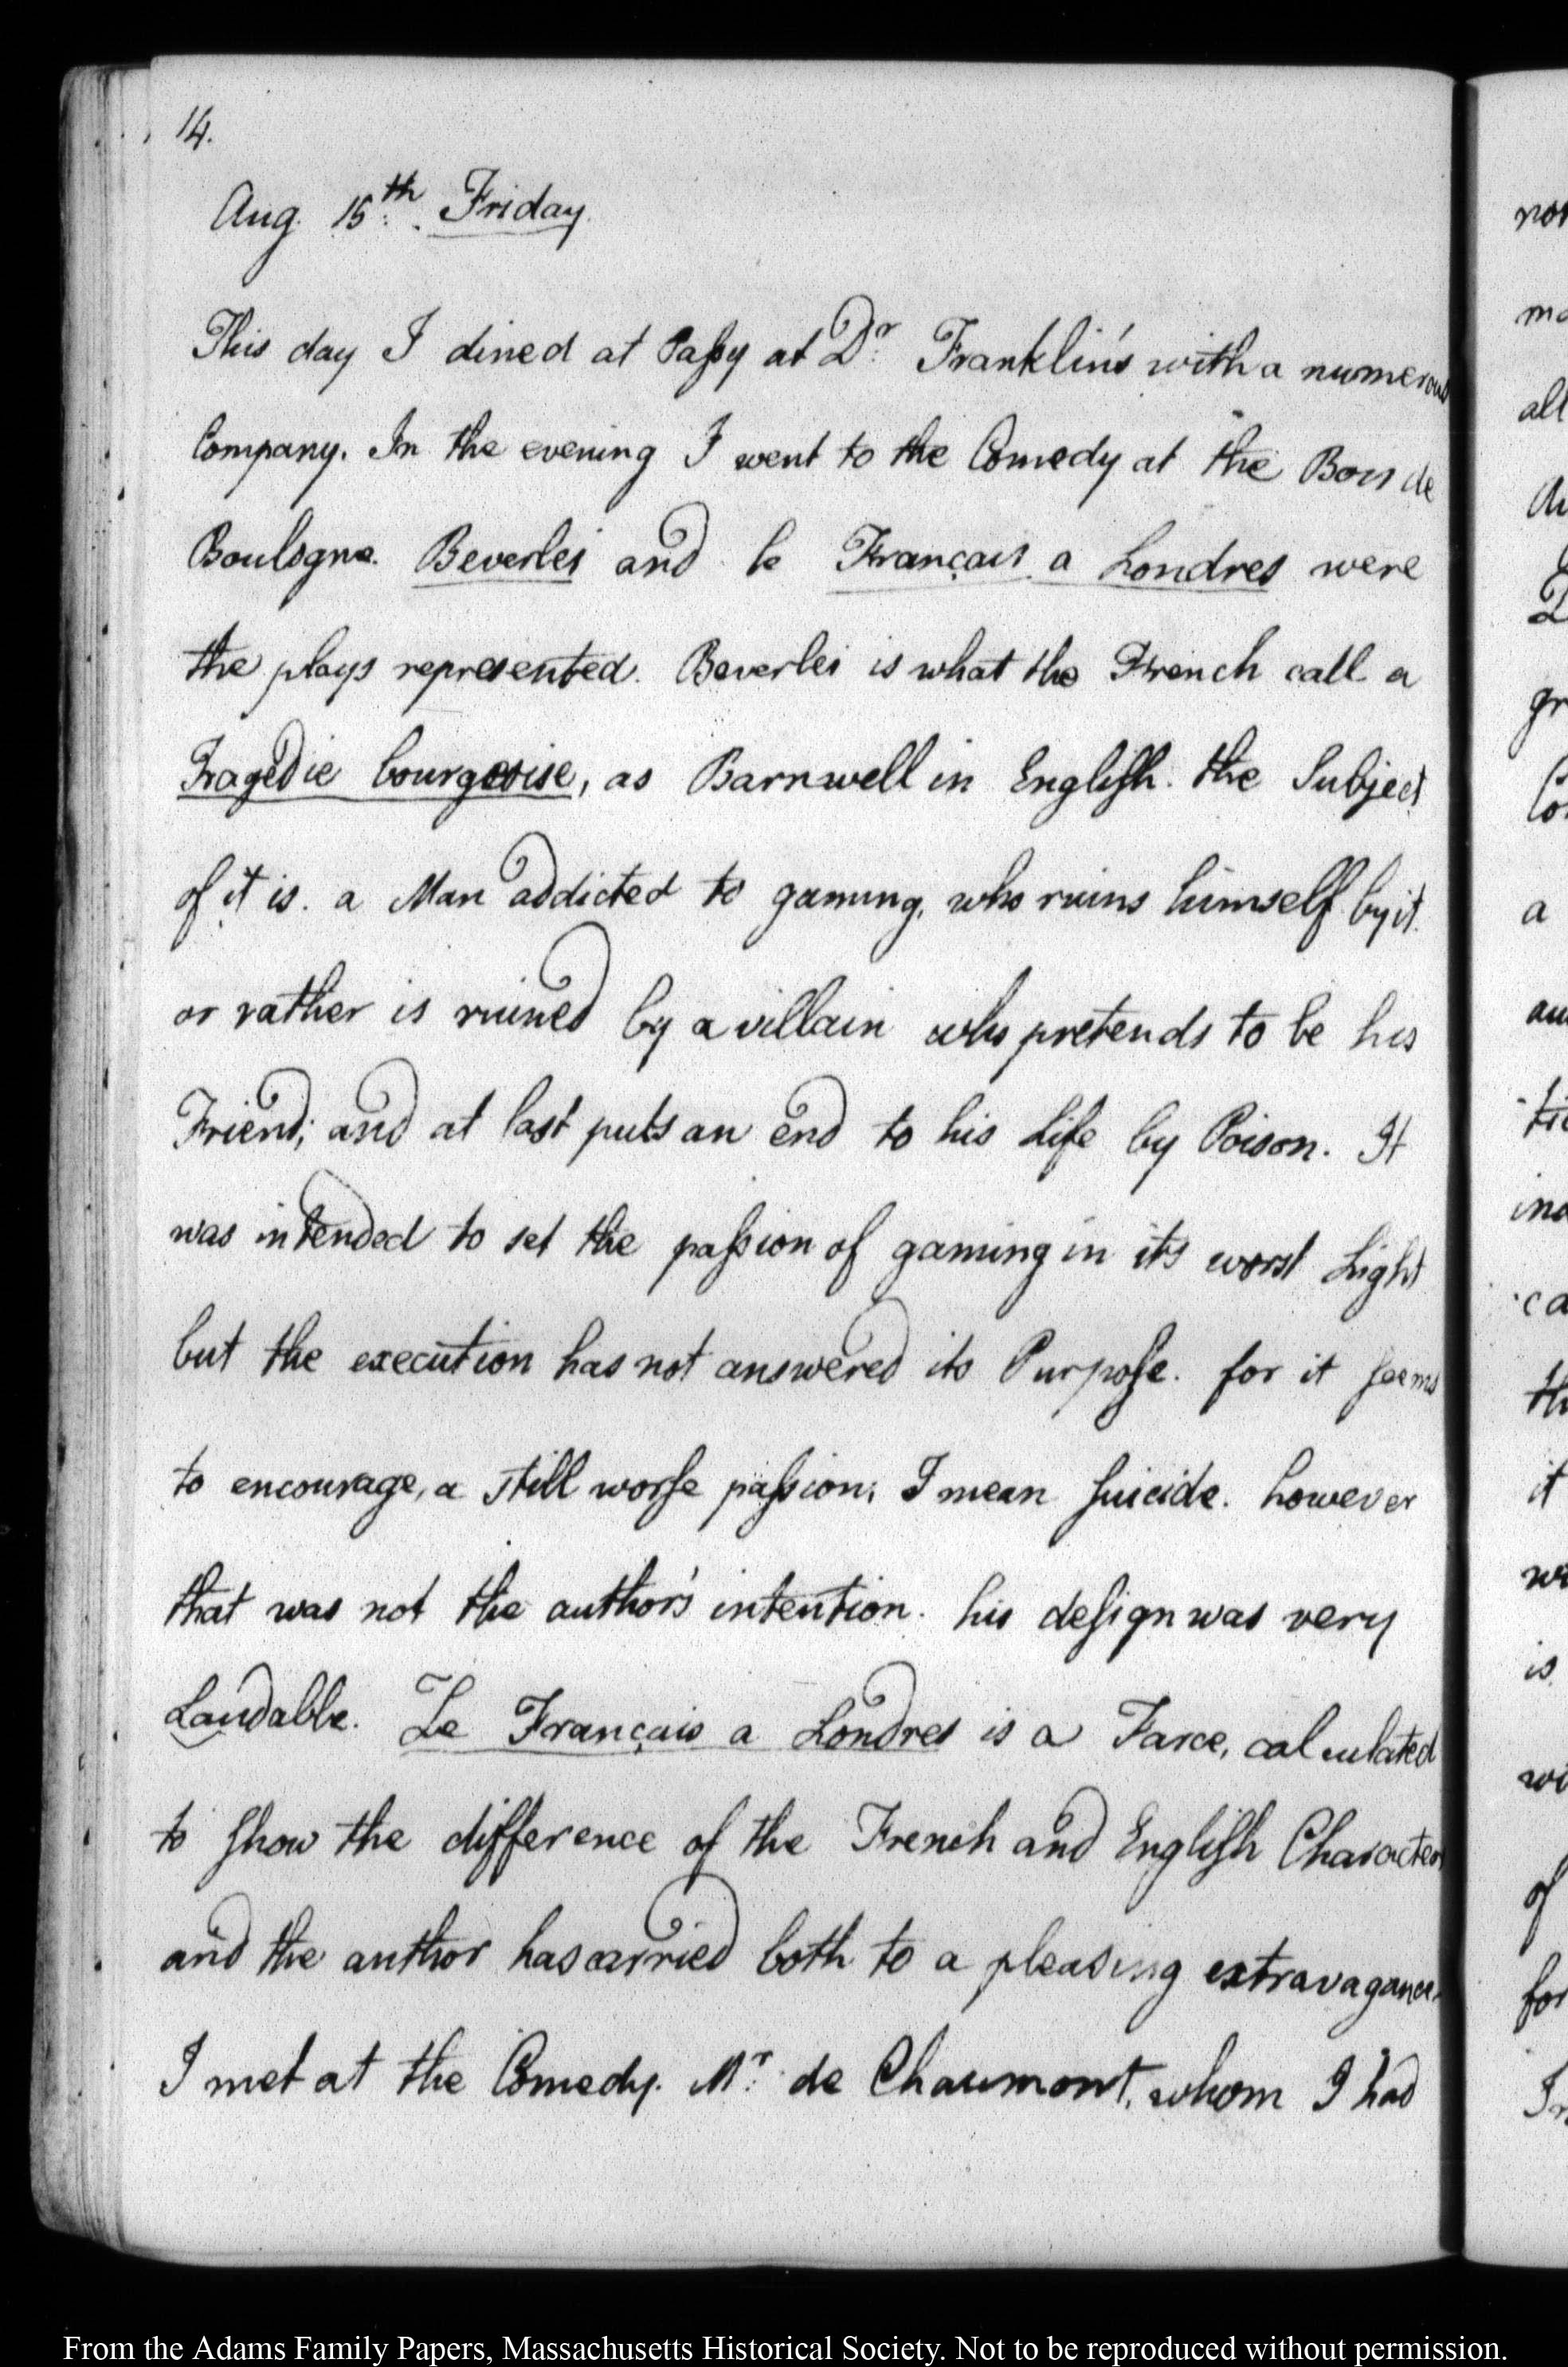 14.
Aug. 15th. Friday.
This day I dined at Passy at Dr. Franklin's with a numerous
Company. In the evening I went to the Comedy at the Bois de
Boulogne. Beverlei and le Français a Londres were
the plays represented. Beverlei is what the French call a
Tragedie bourgeoise, as Barnwell in English. the Subject
of it is. a Man addicted to gaming, who ruins himself by it.
or rather is ruined by a villain who pretends to be his
Friend; and at last puts an end to his Life by Poison. It
was intended to set the passion of gaming in its worst Light
but the execution has not answered its Purpose. for it seems
to encourage, a still worse passion; I mean suicide. however
that was not the author's intention. his design was very
Laudable. Le Français a Londres is a Farce, calculated
to show the difference of the French and English Characters
and the author has carried both to a pleasing extravagance.
I met at the Comedy. Mr. de Chaumont, whom I had
all
a
it
is
of
for
From the Adams Family Papers, Massachusetts Historical Society. Not to be reproduced without permission.